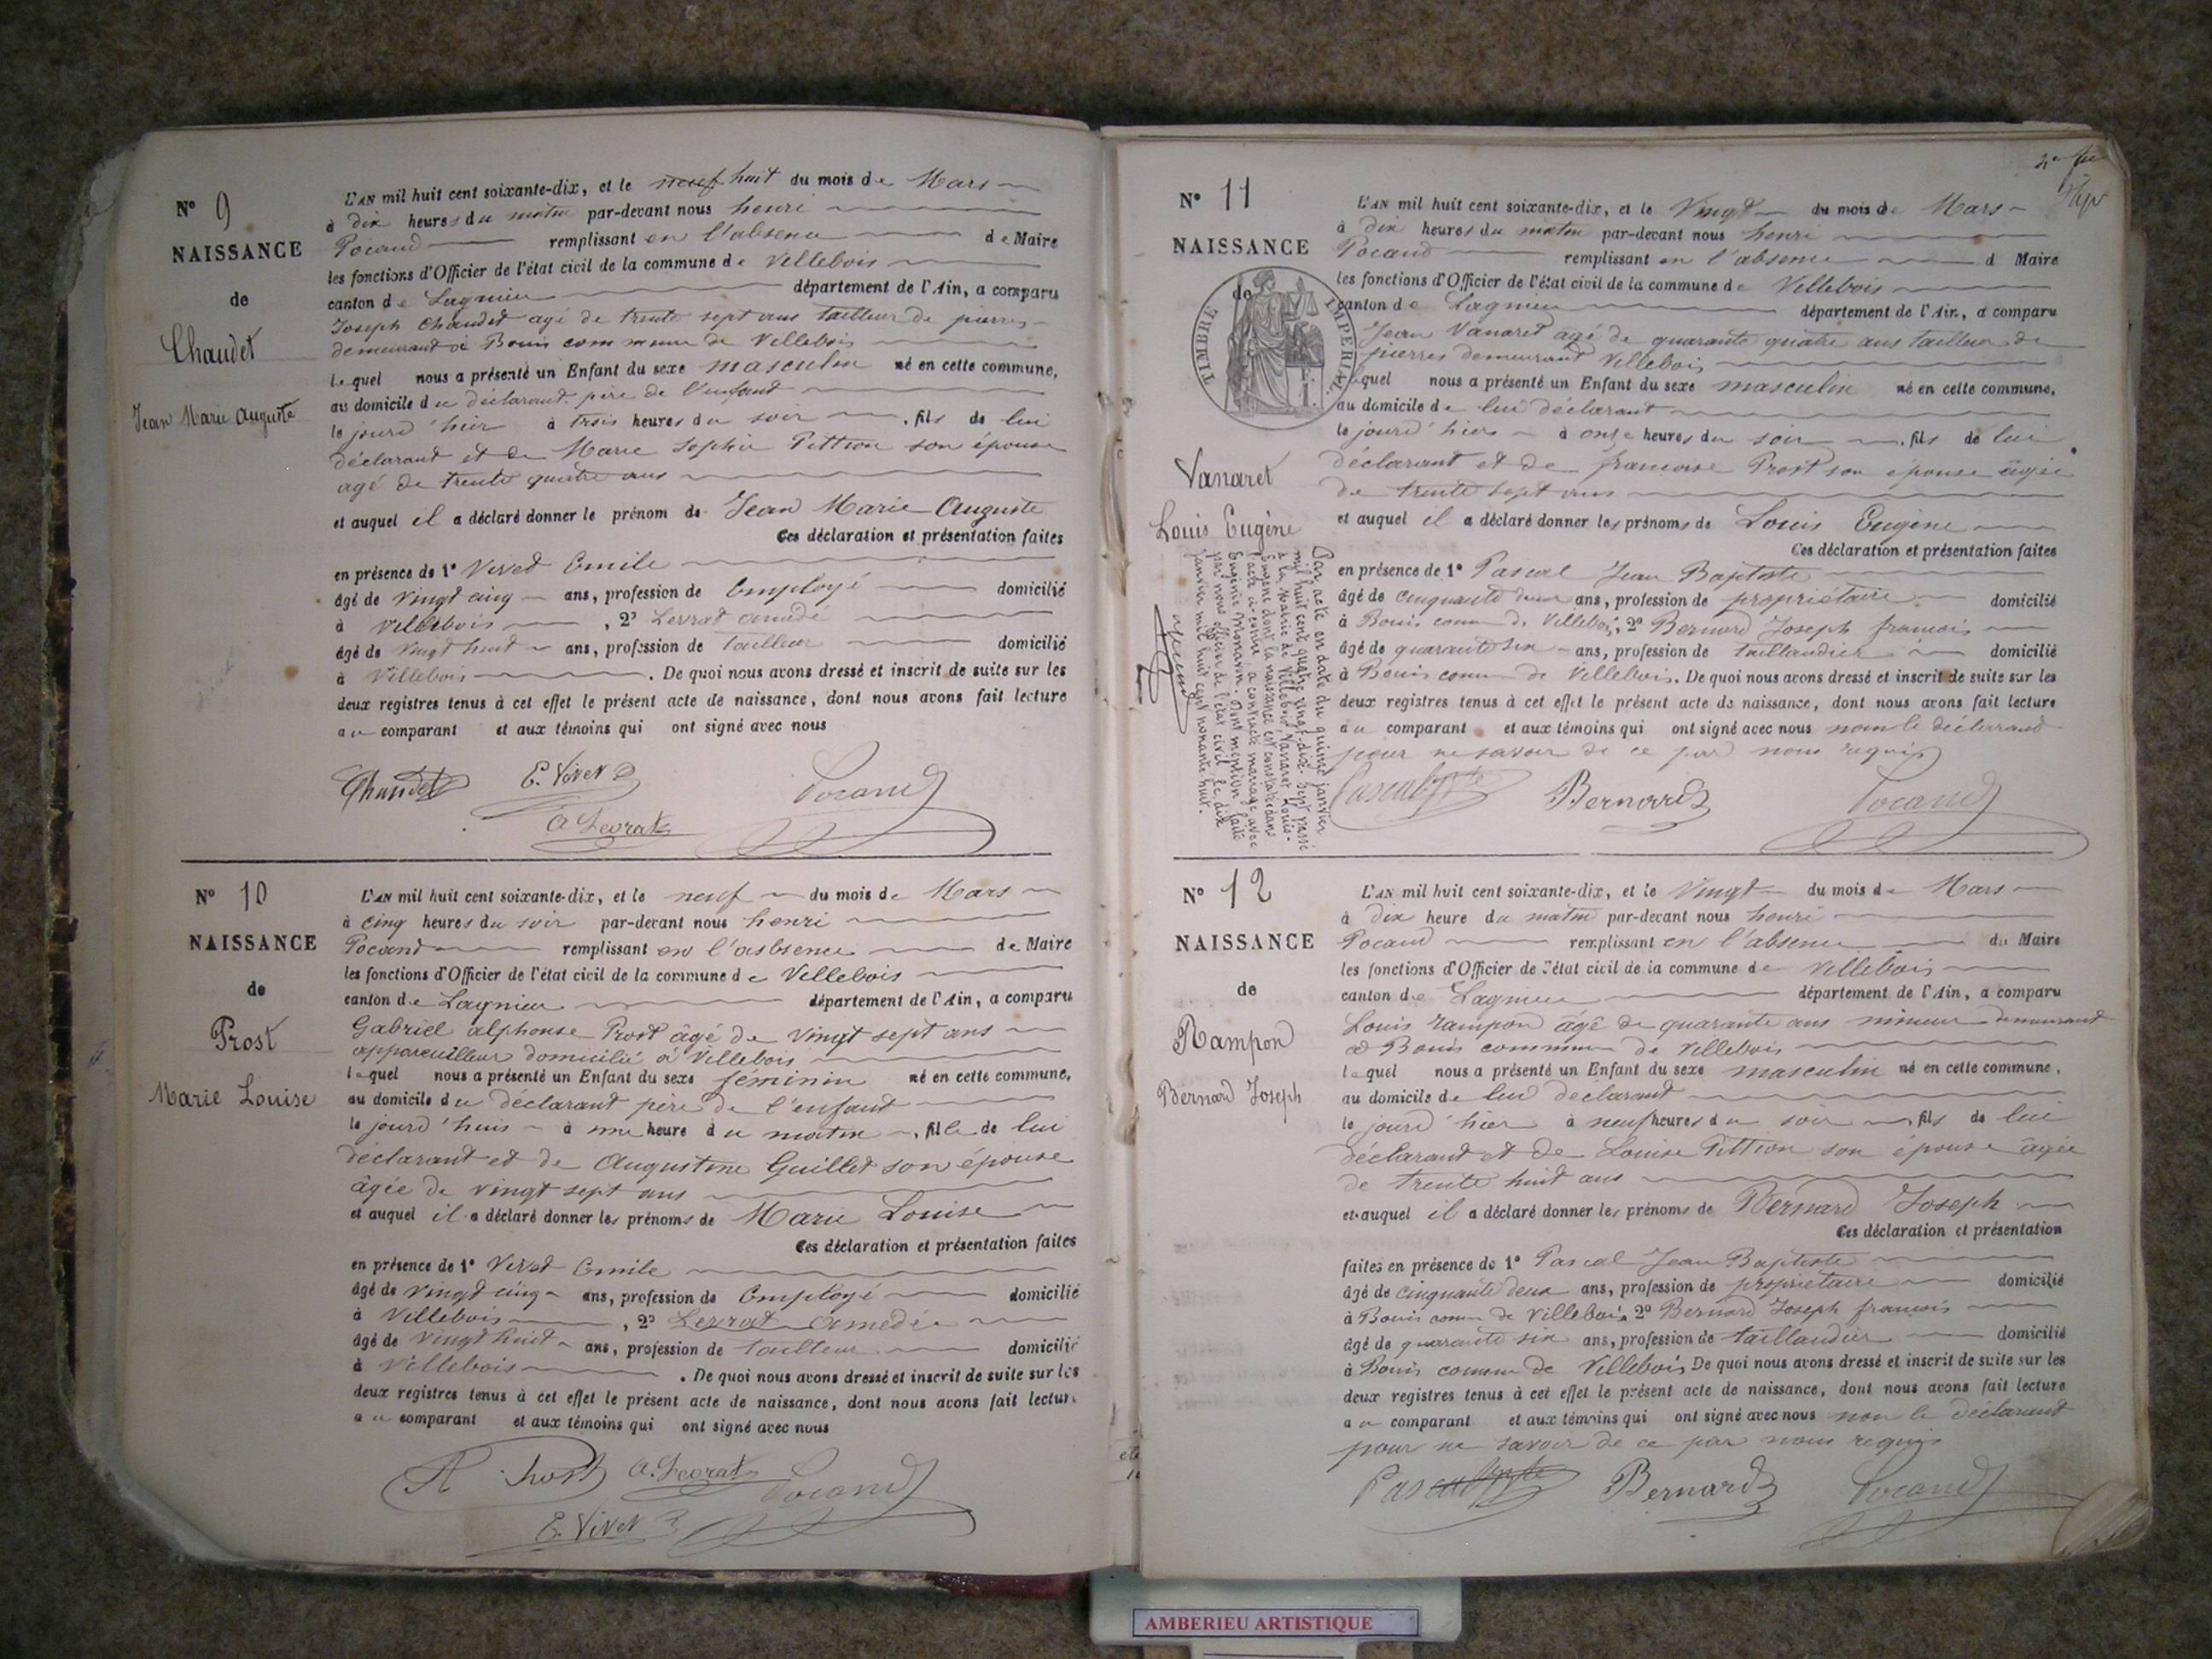 N° 9
NAISSANCE
de
Chaudet
Jean Marie Auguste
L'AN mil huit cent soixante-dix, et le neuf huit du mois de Mars
à dix heures du matin par-devant nous henri
Pocand remplissant en l'absence de Maire
les fonctions d'Officier de l'état civil de la commune de Villebois
canton de Lagnieu département de l'Ain, a comparu
Joseph Chaudet agé de trente sept ans tailleur de pierres
demeurant à Bouis commune de Villebois
lequel nous a présenté un Enfant du sexe masculin né en cette commune,
au domicile du déclarant père de l'enfant
le jourd'hier à trois heures du soir , fils de lui
déclarant et de Marie Sophie Pittion son épouse
agé de trente quatre ans
et auquel il a déclaré donner le prénom de Jean Marie Auguste
Ces déclaration et présentation faites
en présence de 1° Vivet Emile
âgé de vingt cinq ans, profession de Employé domicilié
à Villebois , 2° Levrat amedé
âgé de vingt huit ans, profession de tailleur domicilié
à Villebois . De quoi nous avons dressé et inscrit de suite sur les
deux registres tenus à cet effet le présent acte de naissance, dont nous avons fait lecture
au comparant et aux témoins qui ont signé avec nous
Chaudet E. Vivet Pocand
A. Levrat
N° 10
NAISSANCE
de
Prost
Marie Louise
L'AN mil huit cent soixante-dix, et le neuf du mois de Mars
à cinq heures du soir par-devant nous henri
Pocand remplissant en l'asbsence de Maire
les fonctions d'Officier de l'état civil de la commune de Villebois
canton de Lagnieu département de l'Ain, a comparu
Gabriel alphonse Prost âgé de vingt sept ans
appareilleur domicilié à Villebois
lequel nous a présenté un Enfant du sexe féminin né en cette commune,
au domicile du déclarant père de l'enfant
le jourd'huis à une heure du matin , fille de lui
déclarant et de Augustine Guillet son épouse
âgée de vingt sept ans
et auquel il a déclaré donner les prénoms de Marie Louise
Ces déclaration et présentation faites
en présence de 1° Vivet Emile
âgé de vingt cinq ans, profession de Employé domicilié
à Villebois , 2° Levrat amedée
âgé de vingt huit ans, profession de tailleur domicilié
à Villebois . De quoi nous avons dressé et inscrit de suite sur les
deux registres tenus à cet effet le présent acte de naissance, dont nous avons fait lecture
au comparant et aux témoins qui ont signé avec nous
A Prost A. Levrat Pocand
E. Vivet
N° 11
NAISSANCE
de
TIMBRE IMPERIAL
Vanaret
Louis Eugène
Par acte en date du quinze janvier
mil huit cent quatre vingt-dix-sept passé
à la Mairie de Villebois, Vanaret Louis-
Eugène dont la naissance est constatée dans
l'acte ci-contre a contracté mariage avec
Eugénie Monavon. Dont mention faite
par nous officier de l'état civil le dix
janvier mil huit cent nonante huit.
L'AN mil huit cent soixante-dix, et le Vingt du mois de Mars
à dix heures du matin par-devant nous henri
Pocand remplissant en l'absence d Maire
les fonctions d'Officier de l'état civil de la commune de Villebois
canton de Lagnieu département de l'Ain, a comparu
Jean Vanaret agé de quarante quatre ans tailleur de
pierres demeurant Villebois
lequel nous a présenté un Enfant du sexe masculin né en cette commune,
au domicile de lui déclarant
le jourd'hiers à onze heures du soir , fils de lui
déclarant et de francoise Prost son épouse âgée
de trente sept ans
et auquel il a déclaré donner les prénoms de Louis Eugène
Ces déclaration et présentation faites
en présence de 1° Pascal Jean Baptiste
âgé de cinquante deux ans, profession de propriétaire domicilié
à Bouis comm de Villebois, 2° Bernard Joseph francois
âgé de quarante six ans, profession de taillandier domicilié
à Bouis comm de Villebois. De quoi nous avons dressé et inscrit de suite sur les
deux registres tenus à cet effet le présent acte de naissance, dont nous avons fait lecture
au comparant et aux témoins qui ont signé avec nous non le déclarant
pour ne savoir de ce par nous requis
Pascal Bernard Pocand
N° 12
NAISSANCE
de
Rampon
Bernard Joseph
L'AN mil huit cent soixante-dix, et le Vingt du mois de Mars
à dix heure du matin par-devant nous henri
Pocand remplissant en l'absence du Maire
les fonctions d'Officier de l'état civil de la commune de Villebois
canton de Lagnieu département de l'Ain, a comparu
Louis rampon âgé de quarante ans mineur demeurant
à Bouis commune de Villebois
lequel nous a présenté un Enfant du sexe masculin né en cette commune,
au domicile de lui déclarant
le jourd'hier à neuf heures du soir , fils de lui
déclarant et de Louise Pittion son épouse âgée
de trente huit ans
et auquel il a déclaré donner les prénoms de Bernard Joseph
Ces déclaration et présentation
faites en présence de 1° Pascal Jean Baptiste
âgé de cinquante deux ans, profession de propriétaire domicilié
à Bouis comm de Villebois 2° Bernard Joseph francois
âgé de quarante six ans, profession de taillandier domicilié
à Bouis comm de Villebois De quoi nous avons dressé et inscrit de suite sur les
deux registres tenus à cet effet le présent acte de naissance, dont nous avons fait lecture
au comparant et aux témoins qui ont signé avec nous non le déclarant
pour ne savoir de ce par nous requis
Pascal Bernard Pocand
AMBERIEU ARTISTIQUE